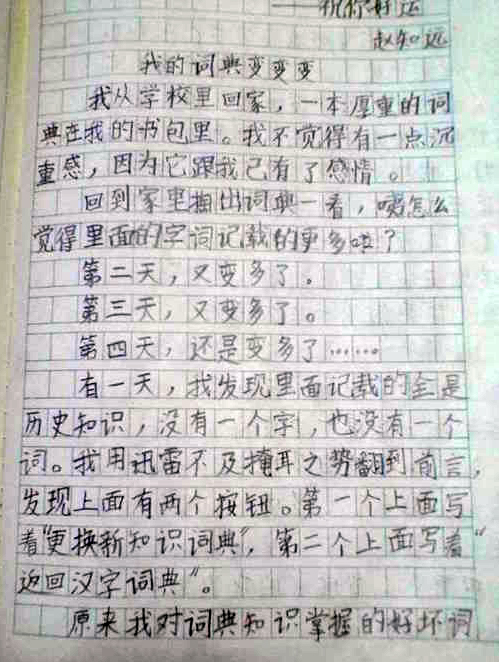 ——祝你好运
赵知远
我的词典变变变
我从学校里回家，一本厚重的词
典在我的书包里。我不觉得有一点沉
重感，因为它跟我已有了感情。
回到家里掏出词典一看，咦怎么
觉得里面的字词记载的更多啦？
第二天，又变多了。
第三天，又变多了。
第四天，还是变多了……
有一天，我发现里面记载的全是
历史知识，没有一个字，也没有一个
词。我用迅雷不及掩耳之势翻到前言，
发现上面有两个按钮。第一个上面写
着“更换新知识词典”，第二个上面写着“
返回汉字词典”。
原来我对词典知识掌握的好坏词